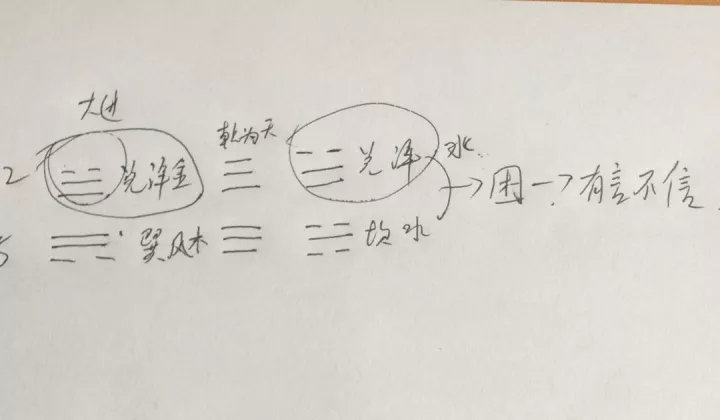 大过 乾为天
2 兑泽金 兑泽 水 → 困 → 有言不信
5 巽风木 坎水